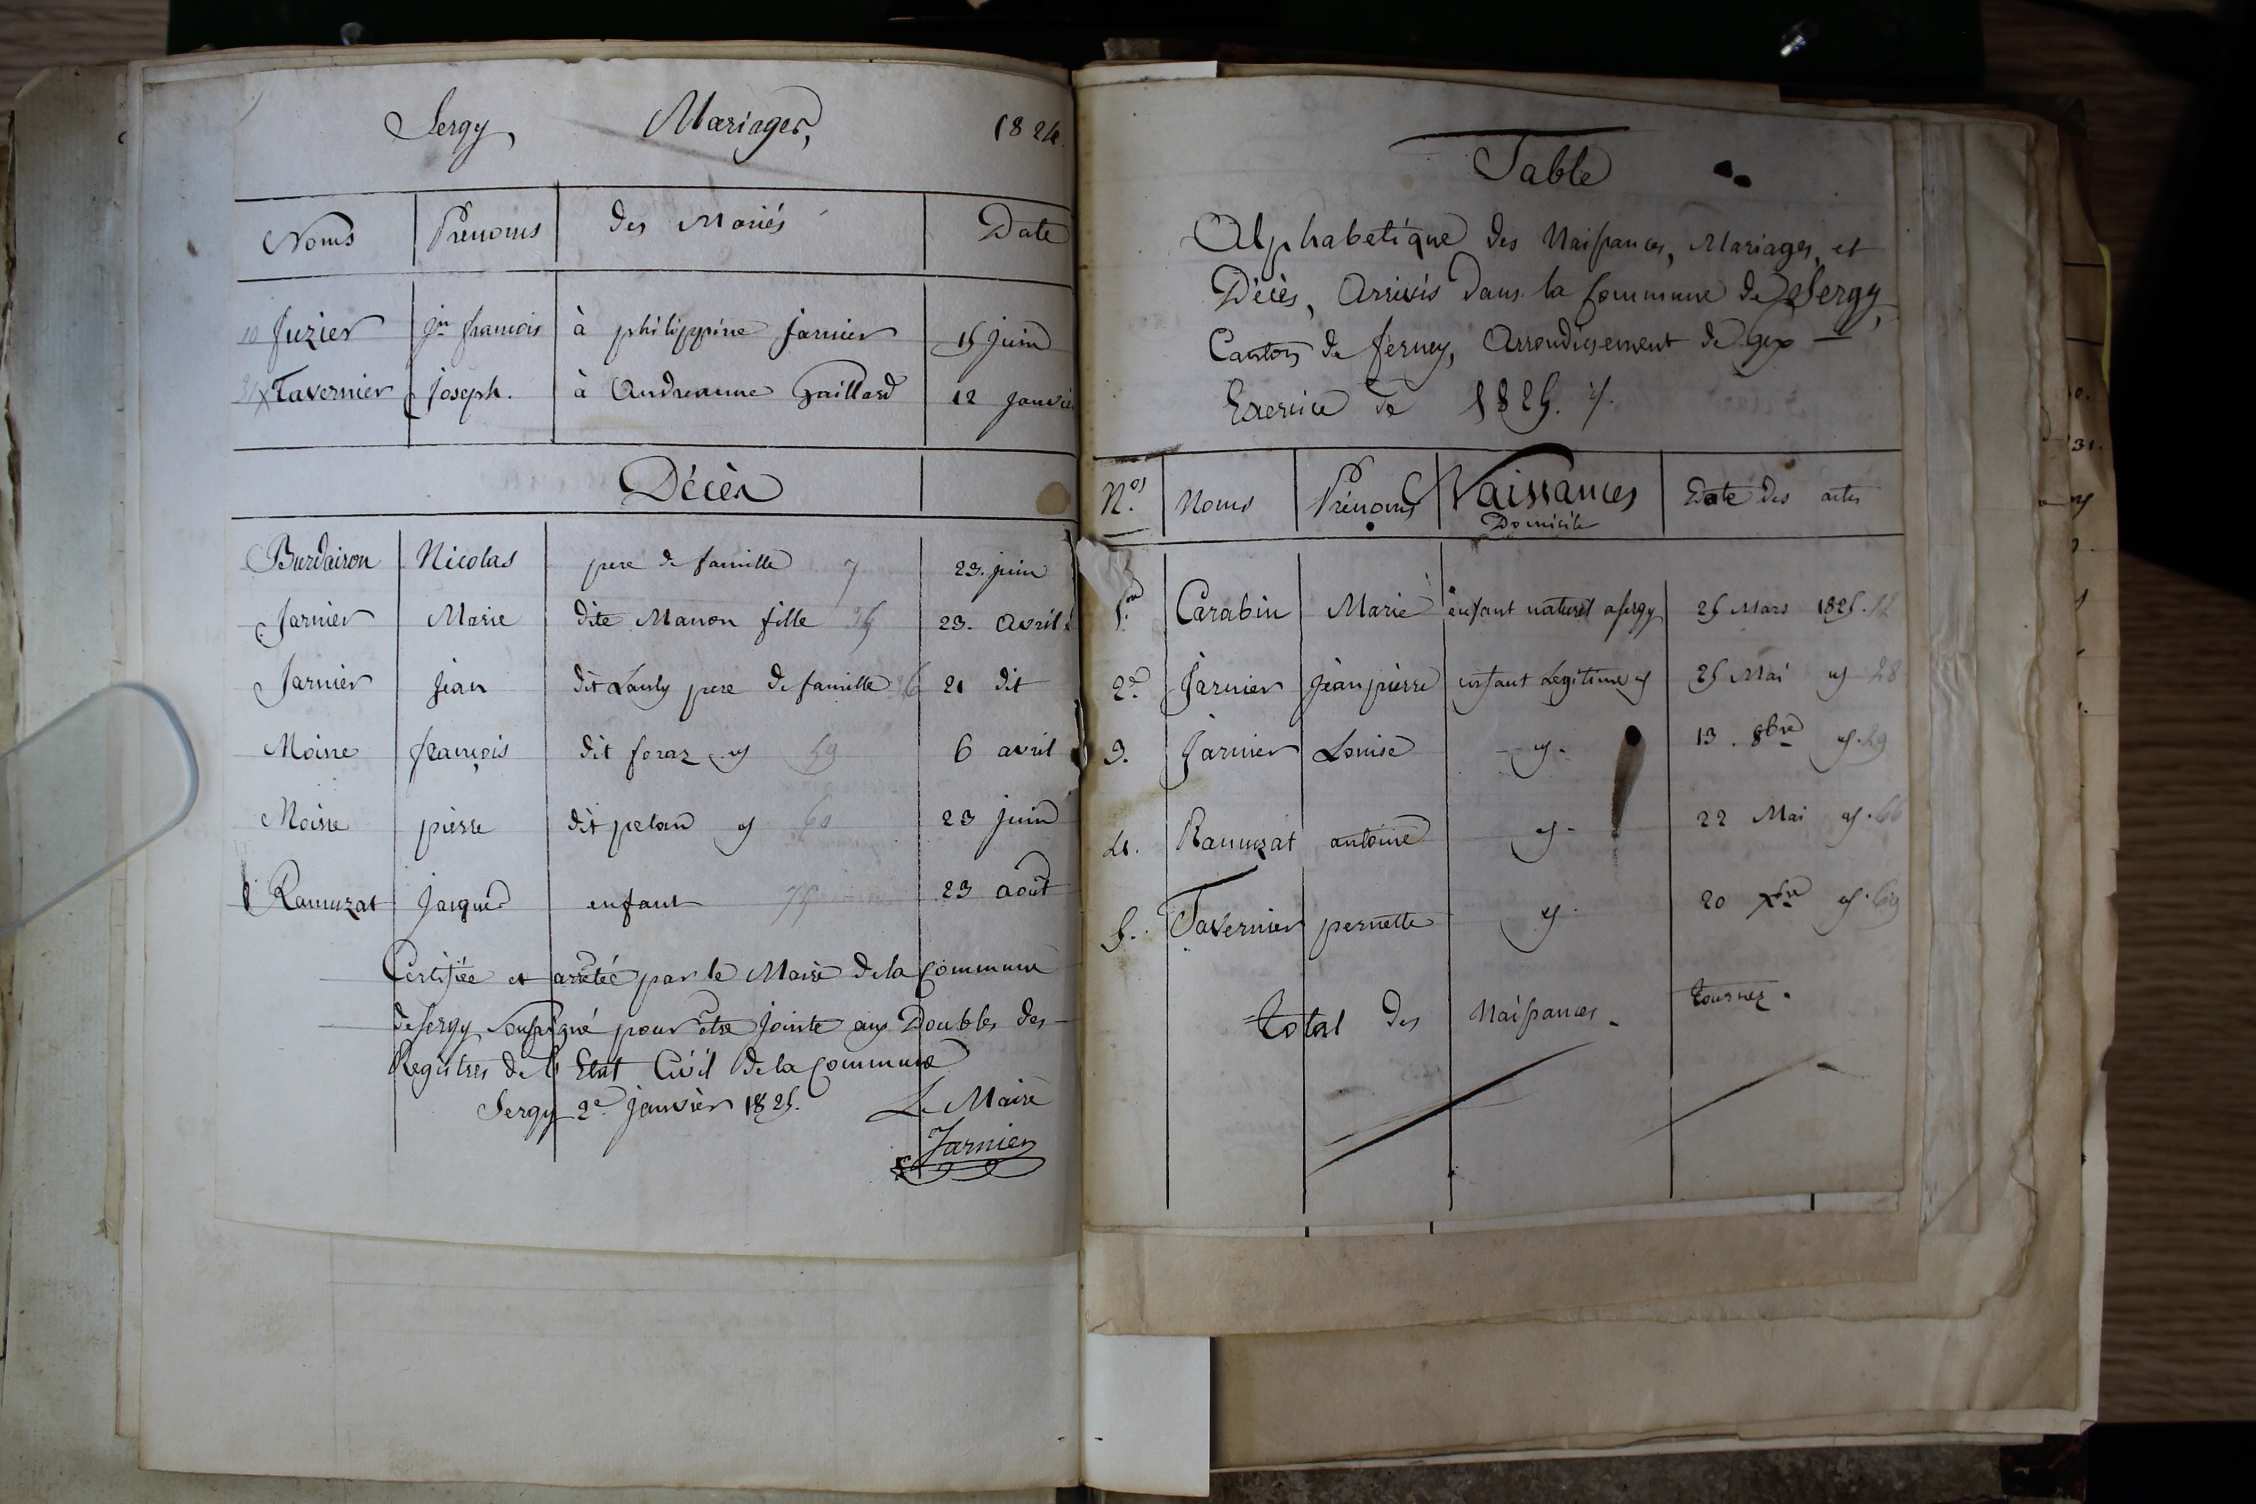 Sergy, Mariages, 1824.
Noms Prénoms des Mariés Date
10 fuzier jn françois à philippine jarnier 15 juin
Tavernier joseph. à Andreanne Gaillard 12 janvier
Décès
Burdairon Nicolas pere de famille 7 23. juin
Jarnier Marie dite Manon fille 35 23. avril
Jarnier jean dit Lauly pere de famille 36 21 dit
Moine françois dit foraz 59 6 avril
Moine pierre dit pelan 60 23 juin
Ramuzat jacques enfant 75 23 août
Certifiée et arretée par le Maire de la Commune
de Sergy Soussigné pour être jointe aux Doubles des
Registres de l'Etat Civil de la Commune
Sergy 2e janvier 1825. Le Maire
Jarnier
Table
Alphabetique des Naissances, Mariages, et
Décès, Arrivés dans la Commune de Sergy,
Canton de ferney, Arrondissement de gex
Exercice de 1825.
N.os Noms Prénoms Naissances Date des actes
Domicile
1.er Carabin Marie enfant naturel a sergy 25 Mars 1825. 12
2.d Jarnier jean pierre enfant Legitime 25 Mai 28
3. Jarnier Louise 13. 8bre 29
4. Ramuzat antoine 22 Mai 66
5. Tavernier pernette 20 Xbre 69
total des Naissances. tournez.